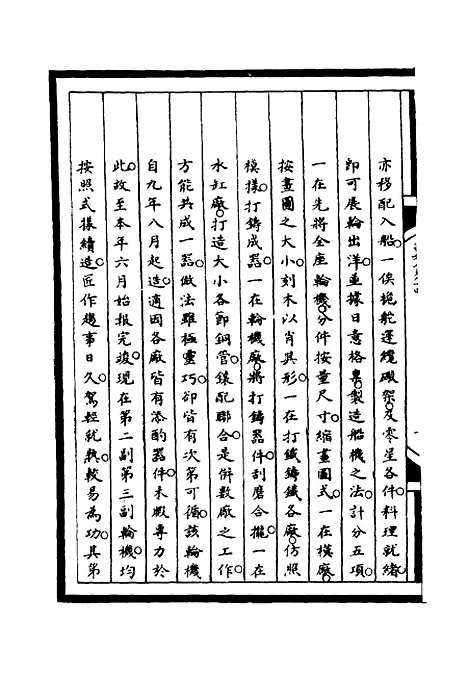 亦移配入船。一俟拖舵運纜礮架。及零星各件料理就緒。
即可展輪出洋。並據日意格稟。製造船機之法。計分五項。
一在先將全座輪機。分件按量尺寸。縮畫圖式。一在模廠。
按畫圖之大小。刻木以肖其形。一在打鐵鑄鐵各廠。仿照
模樣。打鑄成器。一在輪機廠。將打鑄器件刮磨合攏。一在
水缸廠。打造大小各節銅管。鑲配聯合。是併數廠之工作。
方能共成一器。做法雖極靈巧。卻皆有次第可循。該輪機
自九年八月起造。適因各廠皆有添酌器件。未暇專力於
此。故至本年六月始報完竣。現在第二副第三副輪機。均
按照式樣續造。匠作趨事日久。駕輕就熟。較易為功。其第